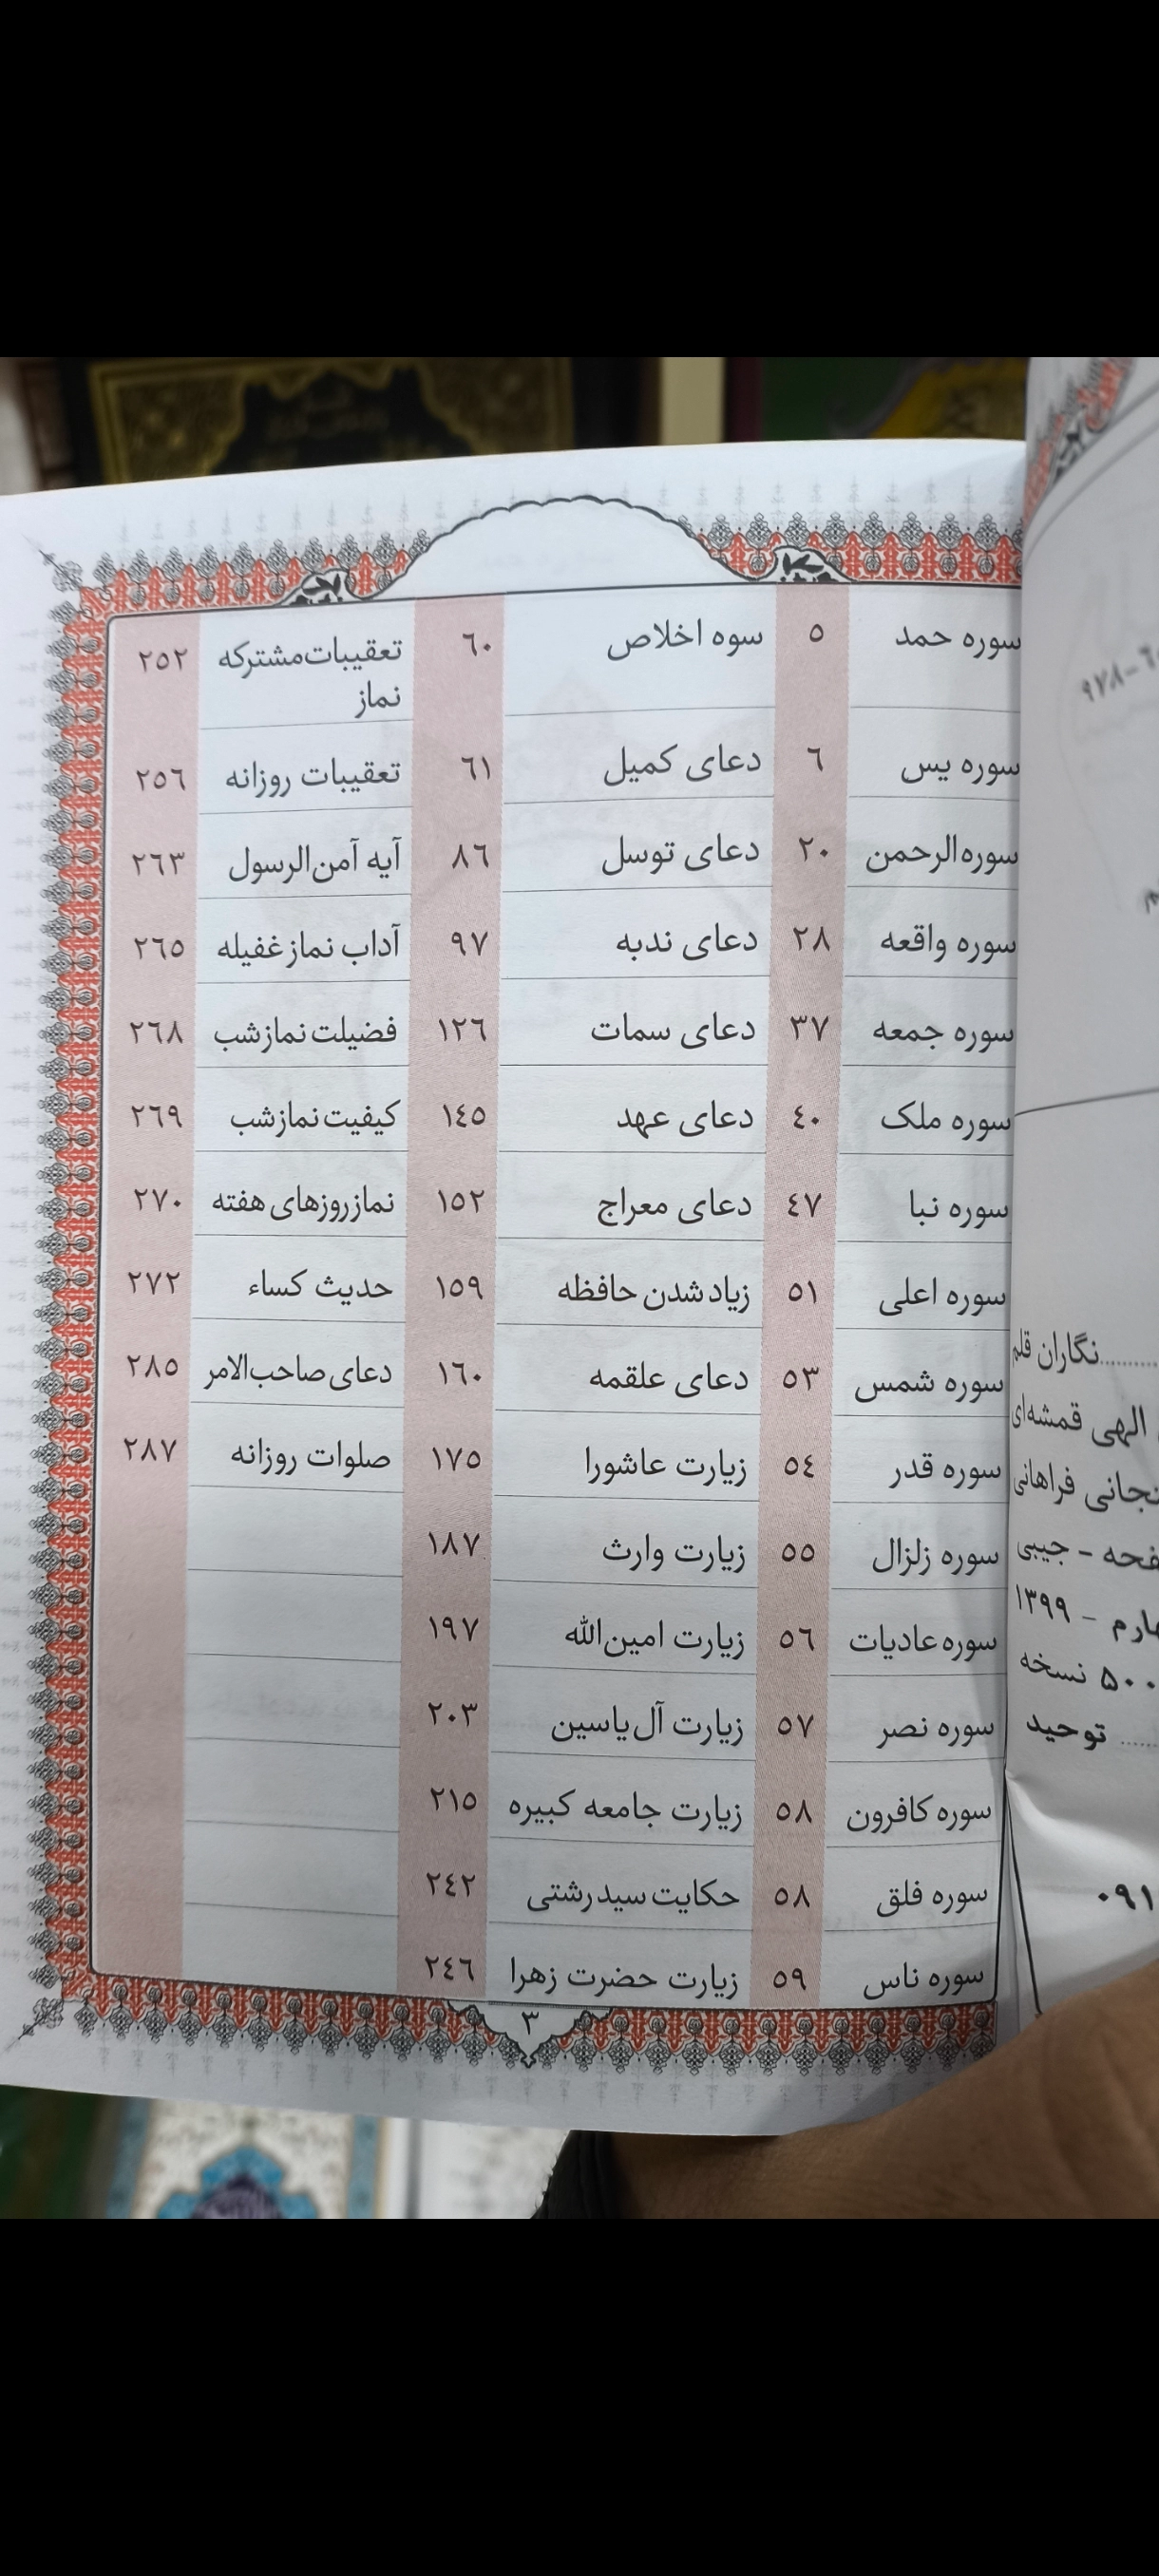 سوره حمد ۵ سوه اخلاص ٦۰ تعقیبات مشترکه نماز ۲۵۲
سوره یس ٦ دعای کمیل ٦۱ تعقیبات روزانه ۲۵٦
سوره الرحمن ۲۰ دعای توسل ۸٦ آیه آمن الرسول ۲٦۳
سوره واقعه ۲۸ دعای ندبه ۹۷ آداب نماز غفیله ۲٦۵
سوره جمعه ۳۷ دعای سمات ۱۲٦ فضیلت نماز شب ۲٦۸
سوره ملک ٤۰ دعای عهد ۱٤۵ کیفیت نماز شب ۲٦۹
سوره نبا ٤۷ دعای معراج ۱۵۲ نماز روزهای هفته ۲۷۰
سوره اعلی ۵۱ زیاد شدن حافظه ۱۵۹ حدیث کساء ۲۷۲
سوره شمس ۵۳ دعای علقمه ۱٦۰ دعای صاحب الامر ۲۸۵
سوره قدر ۵٤ زیارت عاشورا ۱۷۵ صلوات روزانه ۲۸۷
سوره زلزال ۵۵ زیارت وارث ۱۸۷
سوره عادیات ۵٦ زیارت امین الله ۱۹۷
سوره نصر ۵۷ زیارت آل یاسین ۲۰۳
سوره کافرون ۵۸ زیارت جامعه کبیره ۲۱۵
سوره فلق ۵۸ حکایت سید رشتی ۲٤۲
سوره ناس ۵۹ زیارت حضرت زهرا ۲٤٦
۳
۹۷۸-٦
..........نگاران قلم
الهی قمشه‌ای
فراهانی
- جیبی
- ۱۳۹۹
۵۰۰ نسخه
...... توحید
۰۹۱